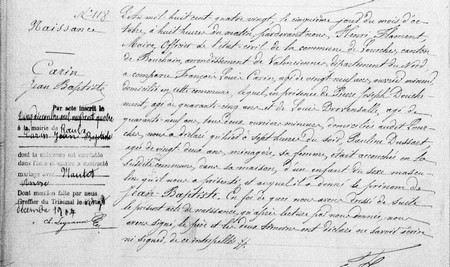 N° 118
Naissance
Carin
Jean Baptiste
Par acte inscrit le
à la mairie de
Carin Jean Baptiste
dont la minute est conservée
a contracté
mariage avec
Dont mention faite par nous
Greffier du Tribunal le vingt
décembre 1904
L'An mil huit cent quatre vingt, le cinquième jour du mois d'oc-
tobre, à huit heures du matin, pardevant nous, Henri Flament,
Maire, Officier de l'état civil de la commune de Lourches, canton
de Bouchain, arrondissement de Valenciennes, département du Nord
a comparu François Louis Carin, agé de vingt neuf ans, ouvrier mineur
domicilié en cette commune, lequel, en présence de Pierre Joseph
agé de quarante cinq ans et de Louis agé de
quarante neuf ans, tous deux mineurs, domiciliés audit Lour-
ches, nous a déclaré qu'hier à sept heures du soir, Pauline Dussart
agée de vingt deux ans, ménagère, sa femme, était accouchée en la
susdite commune, dans sa maison, d'un enfant du sexe mascu-
lin qu'il nous a présenté, et auquel il a donné le prénom de
Jean Baptiste. En foi de quoi nous avons dressé de suite
le présent acte de naissance, qu'après lecture par nous donnée, nous
avons signé, le père et les deux témoins ont déclaré ne savoir écrire
ni signer, de ce interpellés